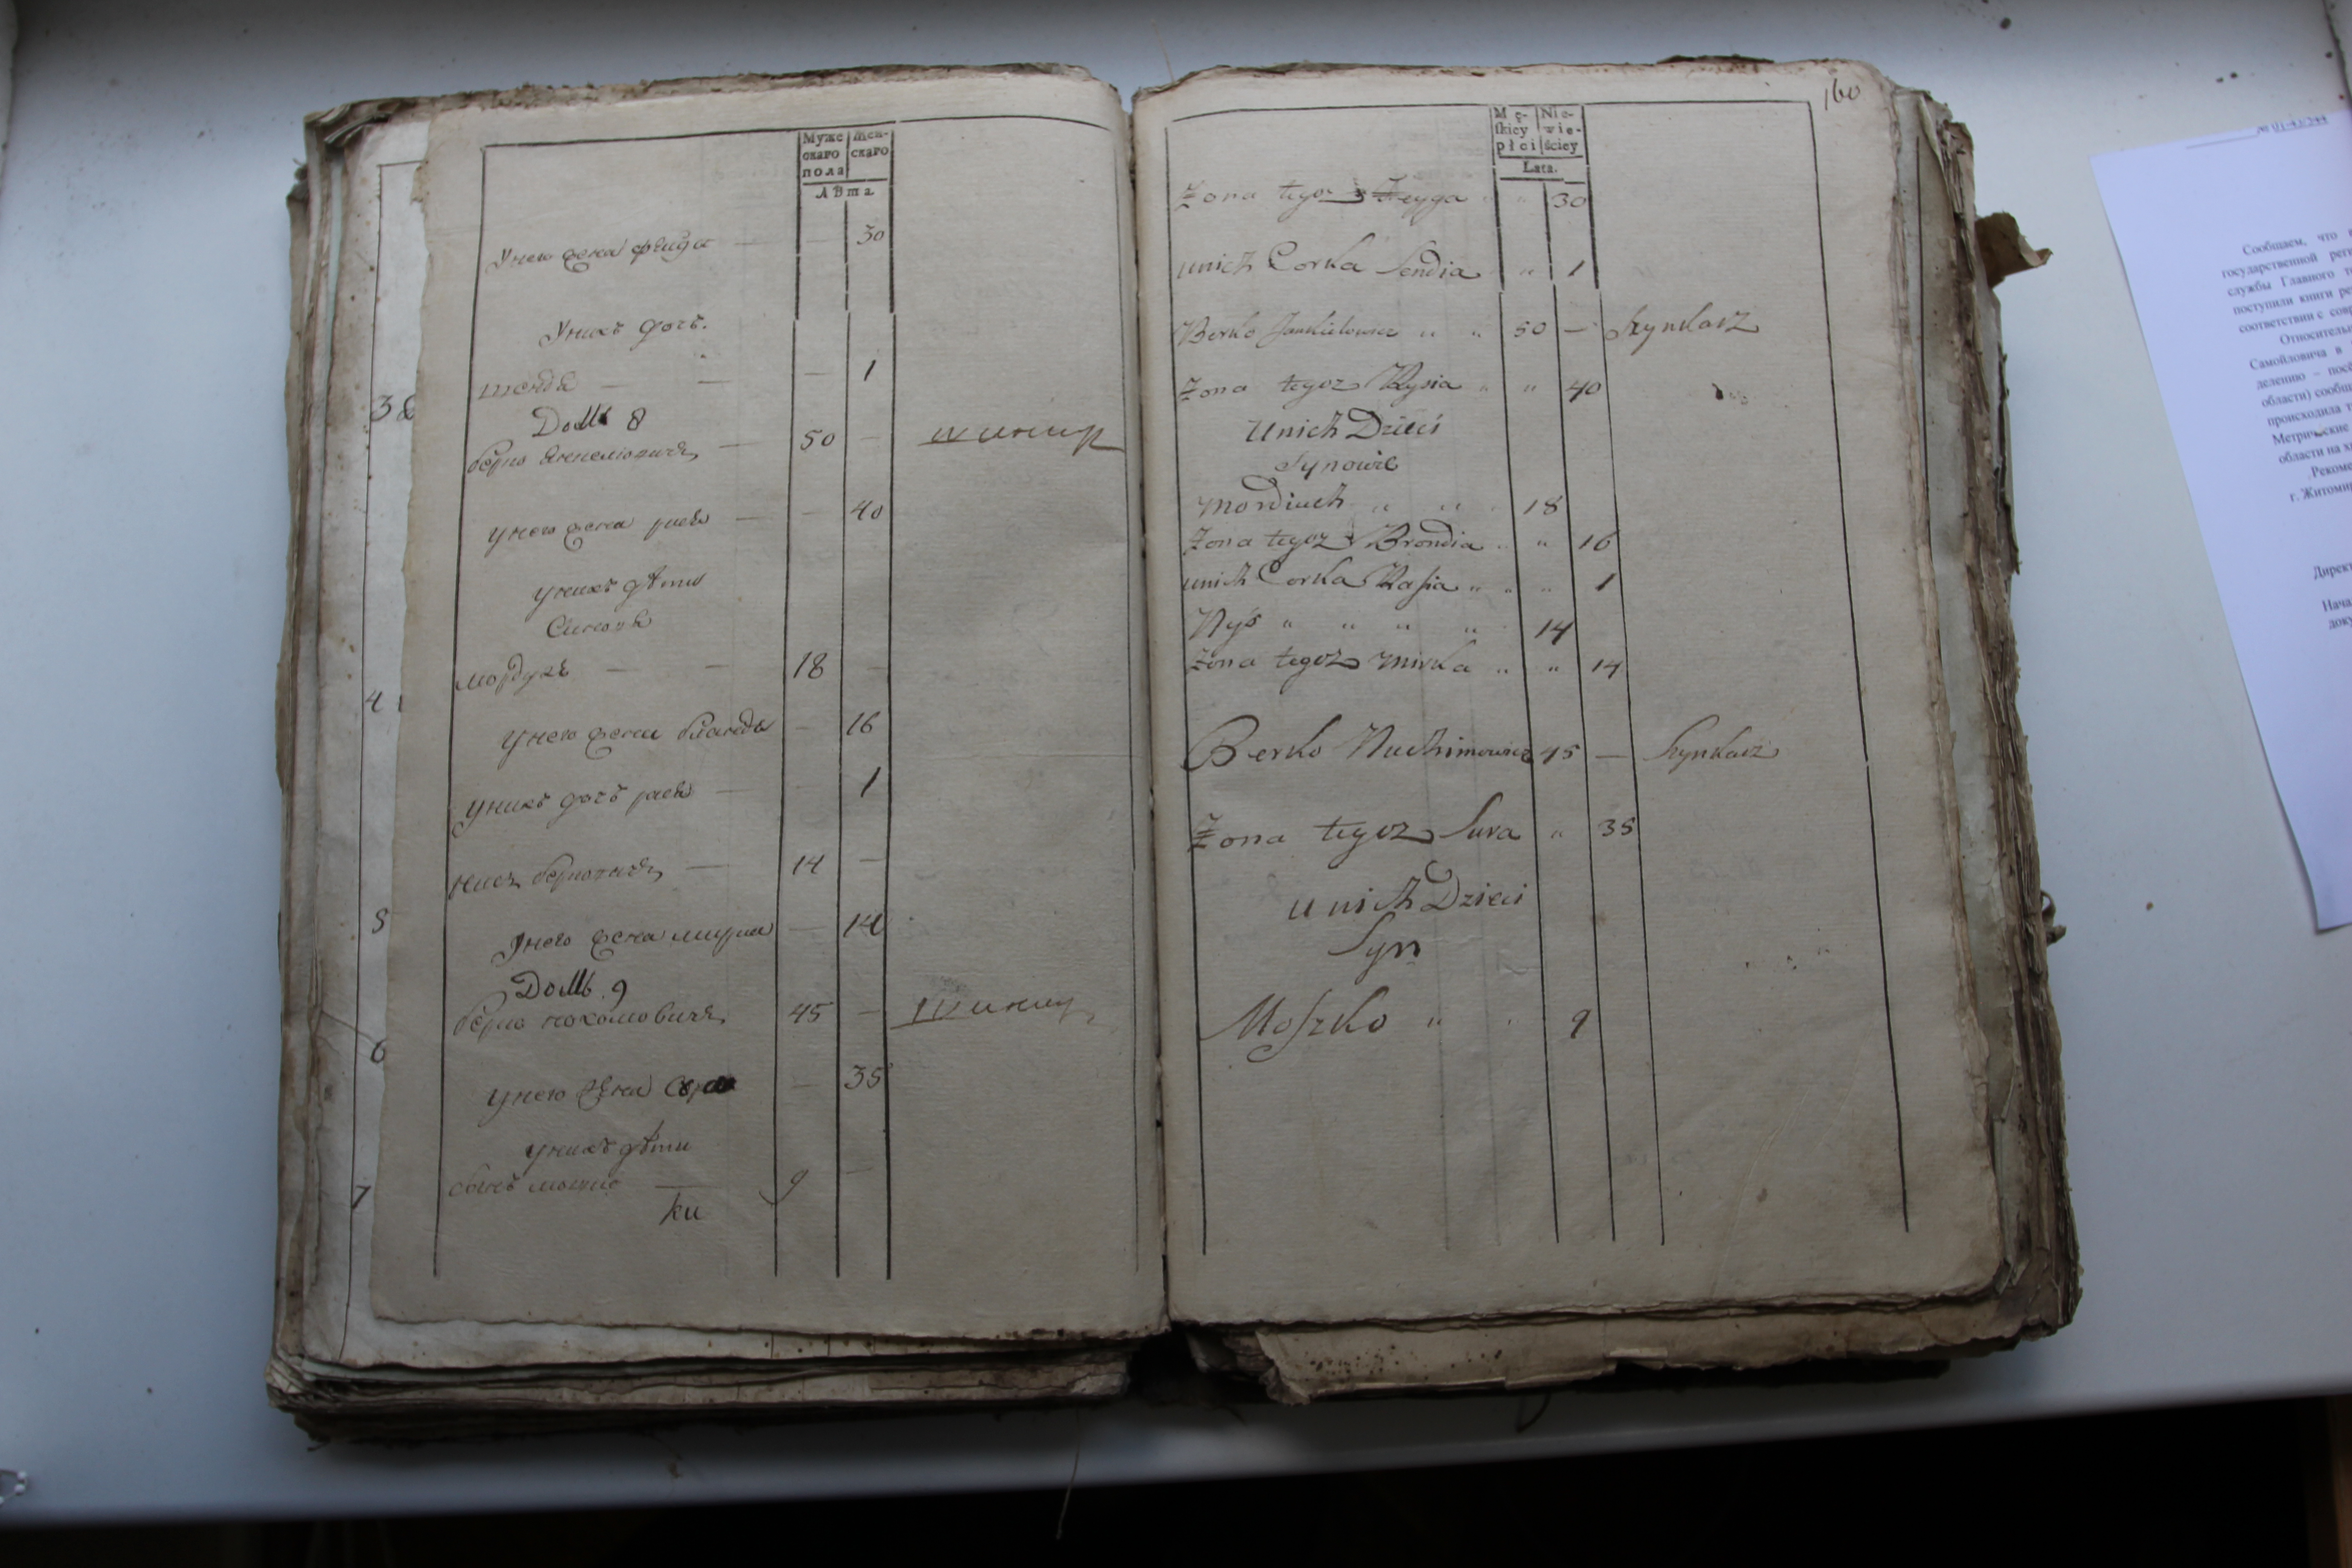 Муже Жен-
скаго скаго
пола
Лѣта
Унего жена фейга — — 30
Унихъ дочь.
шендя — — — 1
Домъ 8
берко Янкелювичъ — 50 — шинкар
унего жена рися — — 40
унихъ дѣти
Синовя
мордухъ — — 18 —
унего жена бранда — 16
унихъ дочъ рася — — 1
нисъ берковичъ — 14 —
унего жена мирка — 14
Домъ 9
берко нохомовичъ 45 — шинкар
унего жена сура — 35
унихъ дѣти
сынъ мошко — 9 —
38
4
5
6
7
160
Mę- Nie-
skiey wie-
płci ściey
Lata.
Zona tegoz Feyga „ „ 30
unich Corka Sendia „ 1
Berko Jankielowicz „ „ 50 — Szynkarz
Zona tegoz Rysia „ „ 40
unich Dzieci
Synowie
Mordiuch „ „ 18
Zona tegoz Brondia „ „ 16
unich Corka Rasia „ „ „ 1
Nys „ „ „ „ 14
Zona tegoz Mirka „ „ 14
Berko Nuchimowicz 45 — Szynkarz
Zona tegoz Sura „ 35
unich Dzieci
Syn
Moszko „ 9
№ 01-43/244
Сообщаем, что
государственной
службы Главного
поступили книги
соответствии с
Относительно
Самойловича в
делению –
области)
происходила
Метрические
области на
г. Житомир